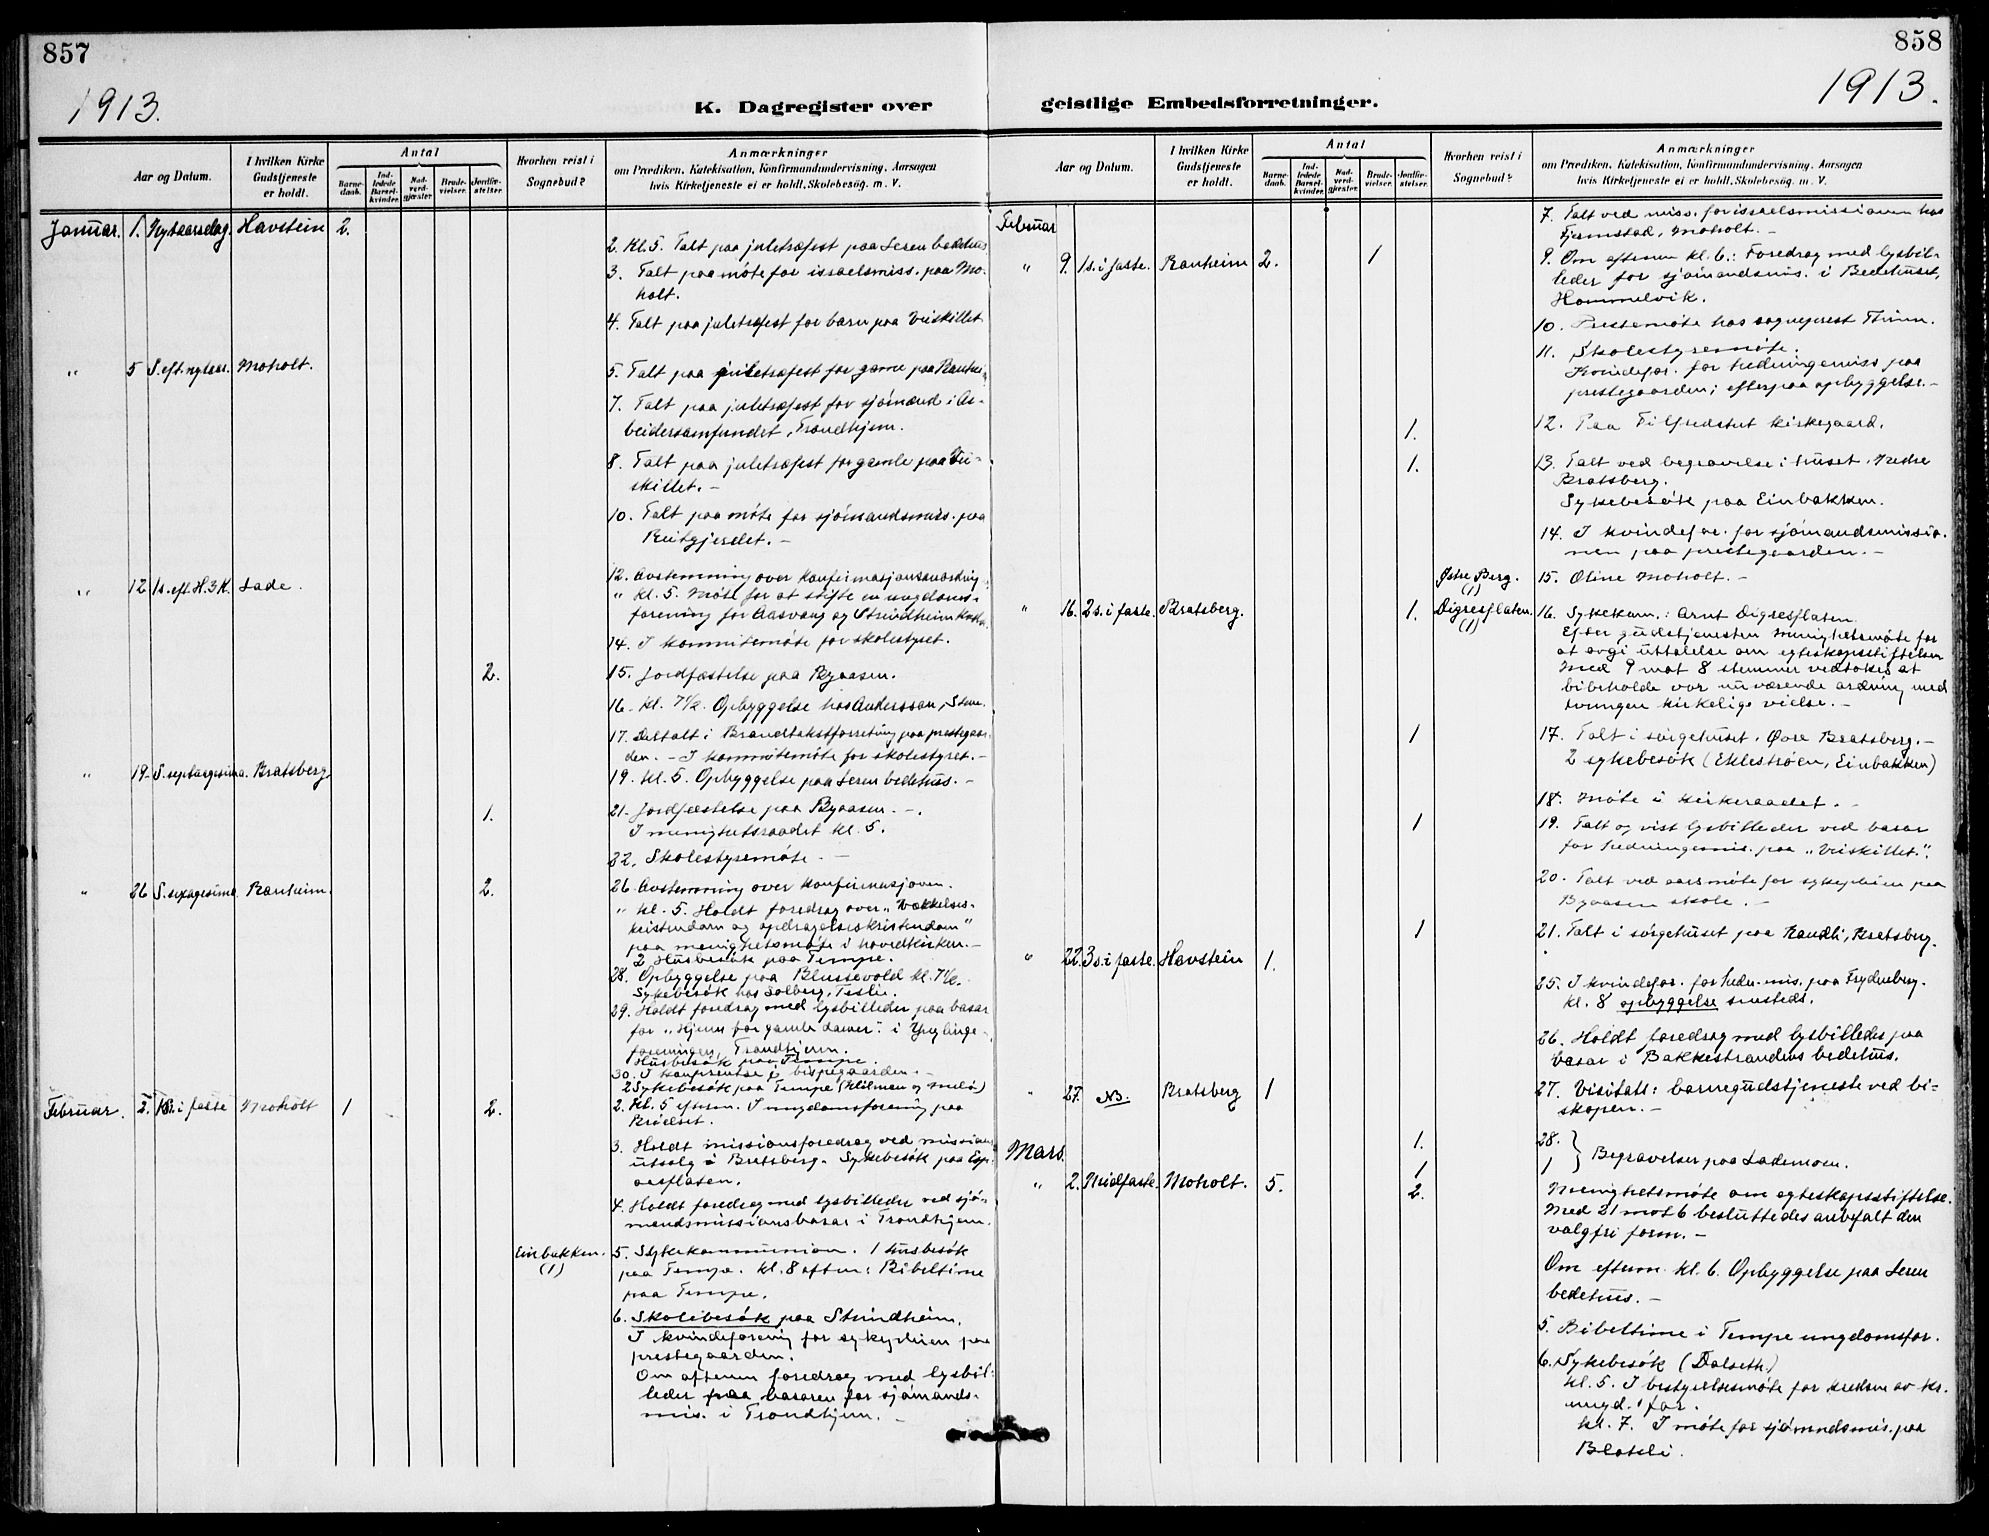 857
1913.
K. Dagregister over
Aar og Datum.
I hvilken Kirke
Gudstjeneste
er holdt.
Antal
Barne-
daab.
Ind-
ledede
Barsel-
kvinder.
Nad-
verd-
gjæster.
Brude-
vielser.
Jordfæ-
stelser.
Hvorhen reist i
Sognebud?
Anmærkninger
om Prædiken, Katekisation, Konfirmandundervisning, Aarsagen
hvis Kirketjeneste ei er holdt, Skolebesøg. m. V.
Januar. 1. Nytaarsdag. Havstein 2.
2. Kl. 5. Talt paa juletræfest paa Leren bedehus
3. Talt paa møte for israelsmiss. paa Mo-
holt.
4. Talt paa juletræfest for barn paa Veiskillet
" 5 S. eft. nytaar. Moholt.
5. Talt paa juletræfest for gamle paa Ranhei
7. Talt paa juletræfest for sjømænd i Ar-
beidersamfundet, Trondhjem.
8. Talt paa juletræfest for gamle paa Vei-
skillet. -
10. Talt paa møte for sjømandsmis. paa
Reitgjerdet. -
" 12 1s. eft. H. 3 K. Lade.
12. Avstemning over konfirmasjonsanordning
" kl. 5. Møte for at stifte en ungdoms-
forening for Aasvang og Strindheim
14. I kommitemøte for skolestyret.
2. 15. Jordfæstelse paa Byaasen.
16. kl. 7½. Opbyggelse hos Anderssan,
17. Deltatt i Brandtakstforretning paa prestegaar-
den. - I kommitemøte for skolestyret. -
" 19. S. septuagesima. Bratsberg
19. kl. 5. Opbyggelse paa Leren bedehus. -
1. 21. Jordfæstelse paa Byaasen. -.
I menighetsraadet kl. 5.
22. Skolestyremøte. -
" 26 S. sexagesima Ranheim. 2.
26. Avstemning over konfirmasjonen.
" kl. 5. Holdt foredrag over "Vækkelses-
kristendom og opdragelseskristendom"
paa menighetsmøte i hovedkirken. -
2 Husbesøk paa Tempe.
28. Opbyggelse paa Blussevold kl. 7½.
Sykebesøk hos Solberg, Teslie.
29. Holdt foredrag med lysbilleder paa basar
for "Hjem for gamle damer" i Ynglinge-
foreningen, Trondhjem.
Husbesøk paa Tempe.
30. I konferense i bispegaarden. -
2 Sykebesøk paa Tempe (Hilmen og Melø)
Februar. 2. S. i faste Moholt 1 2.
2. Kl. 5 efterm. I ungdomsforening paa
Brøelset.
3. Holdt missionsforedrag ved missions
utsalg i Bratsberg. Sykebesøk paa Esp-
aasflaten.
4. Holdt foredrag med lysbilleder ved sjø-
mandsmissionsbasar i Trondhjem.
Einbakken. (1) 5. Sykekommunion. 1 husbesøk
paa Tempe. kl. 8 aften: Bibeltime
paa Tempe.
6. Skolebesøk paa Strindheim.
I kvindeforening for sykepleien paa
prestegaarden.
Om aftenen foredrag med lysbil-
leder paa basaren for sjømands-
mis. i Trondhjem. -
858
1913.
geistlige Embedsforretninger.
Aar og Datum.
I hvilken Kirke
Gudstjeneste
er holdt.
Antal
Barne-
daab.
Ind-
ledede
Barsel-
kvinder.
Nad-
verd-
gjæster.
Brude-
vielser.
Jordfæ-
stelser.
Hvorhen reist i
Sognebud?
Anmærkninger
om Prædiken, Katekisation, Konfirmandundervisning, Aarsagen
hvis Kirketjeneste ei er holdt, Skolebesøg. m. V.
Februar
7. Talt ved miss. for israelsmissionen hos
Fjermstad, Moholt. -
" 9. 1s. i faste. Ranheim 2. 1
9. Om aftenen kl. 6.: Foredrag med lysbil-
leder for sjømandsmis. i Bedehuset,
Hommelvik.
10. Prestemøte hos sogneprest Thinn.
11. Skolestyremøte.
Kvindefor. for hedningemiss paa
prestegaarden; efterpaa opbyggelse. -
1. 12. Paa Tilfredshet kirkegaard.
1. 13. Talt ved begravelse i huset. Nedre
Bratsberg.
Sykebesøk paa Einbakken.
14. I kvindefor. for sjømandsmissio-
nen paa prestegaarden. -
Østre Berg. (1) 15. Oline Moholt. -
" 16. 2 s. i faste. Bratsberg. 1. Digresflaten. (1)
16. Sykekom.: Arnt Digresflaten.
Efter gudstjenesten menighetsmøte for
at avgi uttalelse om egteskapsstiftelsen
Med 9 mot 8 stemmer vedtokes at
bibeholde vor nuværende ordning med
tvungen kirkelige vielse. -
1 17. Talt i sørgehuset. Øvre Bratsberg. -
2 sykebesøk (Eklestrøen, Einbakken)
18. Møte i kirkeraadet. -
1 19. Talt og vist lysbilleder ved basar
for hedningemis. paa "Veiskillet".
20. Talt ved aarsmøte for sykepleien paa
Byaasen skole. -
1 21. Talt i sørgehuset paa Randli, Bratsberg.
" 22. 3 s. i faste Havstein 1.
25. I kvindefor. for hedn. mis. paa Frydenberg.
kl. 8 opbyggelse smsteds.
26. Holdt foredrag med lysbilleder paa
basar i Bakkestrandens bedehus.
" 27. NB. Bratsberg 1
27. Visitats: barnegudstjeneste ved bi-
skopen. -
Mars.
1. 28.
1 1
Begravelser paa Lademoen.
" 2. Midfaste. Moholt. 5. 2.
Menighetsmøte om egteskapsstiftelse.
Med 21 mot 6 besluttedes anbefalt den
valgfri form. -
Om efterm. kl. 6. Opbyggelse paa Leren
bedehus. -
5. Bibeltime i Tempe ungdomsfor.
6. Sykebesøk (Dalseth.)
kl. 5. I bestyrelsesmøte for kredsen av kr.
ungd. for.
kl. 7. I møte for sjømndsmis. paa
Blakli.